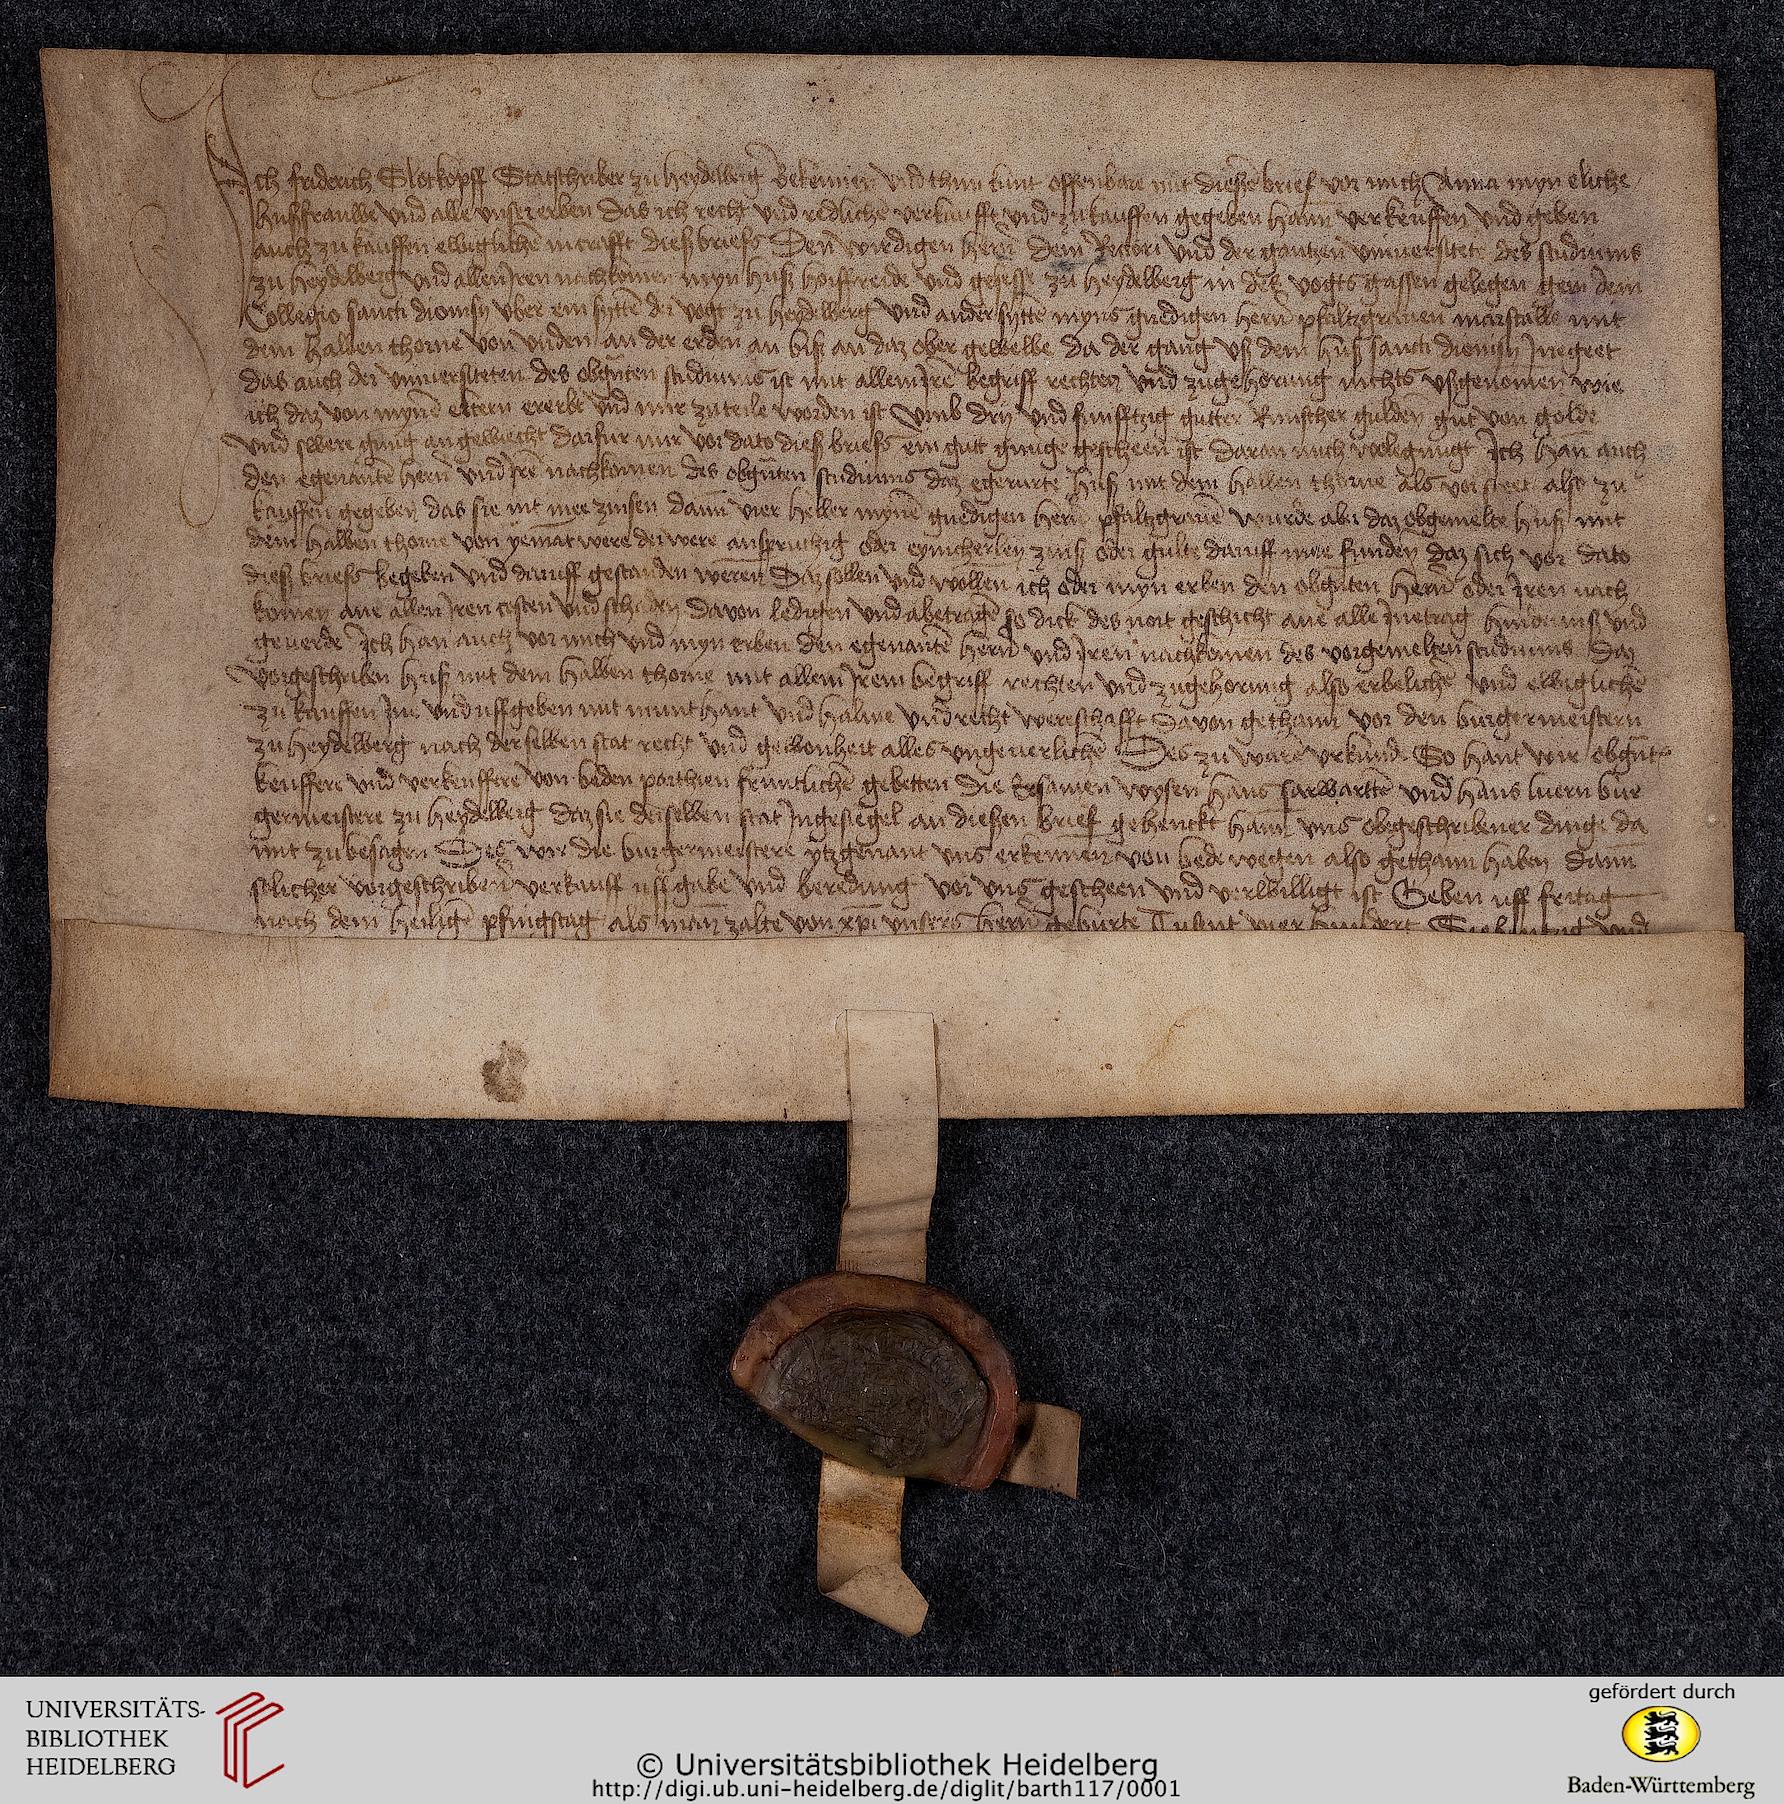 Ich friderich Glockopff Statschriber zu heydelberg Bekennen vnd thun kunt offenbare mit dießem brief vor mich Anna myn eliche
hußfrauwe vnd alle vnser erben das ich recht vnd redlichē verkaufft vnd zukauffen gegeben hann verkeuffen vnd geben
auch zu kauffen ewiglichē in crafft dieß briefs Den wirdigen hern dem Rectori vnd der gantzen vniuersitete des studiums
zu heydelberg vnd allen Iren nachkomen myn huß hoiffreide vnd geseße zu heydelberg in der vogts gassen gelegen gein dem
Collegio sancti dionisy vber ein sytte der vogt zu heydelberg vnd ander sytte myns gnedigen hern pfaltzgrauen marstalle mit
dem halben thorne von vnden an der erden an biß an daz ober gewelbe da der gang vß dem huß sancti dionisy Inegeet
das auch der vniuersiteten des obgnten studiums ist mit allem Irē begriff rechten vnd zugehorung nichts vßgenomen wie
ich daz von mynē eltern ererbt vnd mir zuteile worden ist vmb dry vnd funfftzig gutter Rinscher gulden gut von golde
vnd swere gnug an gewiecht darfur mir vor dato dieß briefs ein gut gnuge gescheen ist daran mich wolegnugt Ich han auch
den egenantē hern vnd Irē nachkomen des obgnten studiums daz egerurte huß mit dem halben thorne als vorsteet also zu
kauffen gegeben das sie nit mee zinsen dann vier heller mynē gnedigen hern pfaltzgrauē wurde aber daz obgemelte huß mit
dem halben thorne von yemāt were der were anspruchig oder eynicherley zinß oder gulte daruff mee funden daz sich vor dato
dieß briefs begeben vnd daruff gestanden weren Daz sollen vnd wollen ich oder myn erben den obgnten hern oder Iren nach
komen ane allen Iren costen vnd schaden davon ledigen vnd abetragē so dick des noit geschicht ane alle Inetrag hinderniß vnd
geuerde Ich han auch vor mich vnd myn erben den egenantē hern vnd Iren nachkomen des vorgemelten studiums Daz
vorgeschriben huß mit dem halben thorne mit allem Irem begriff rechten vnd zugehorung also erbelichē vnd ewiglichē
zu kauffen Ine vnd uffgeben mit munt hant vnd halme vnd recht werschafft davon gethann vor den burgermeistern
zu heydelberg nach derselben stat recht vnd gewonheit alles vngeuerlichē Des zu ware vrkund So hant wir obgnt
keuffere vnd verkeuffere von beden parthien fruntlichē gebetten die Ersamen wysen hans vnd hans bur
germeistere zu heydelberg daz sie derselben stat Ingesiegel an dießen brief gehenckt hann vns obgeschribener dinge da
mit zubesagen Des wir die burgermeistere ytzgenant vns erkennen von bede wegen also gethann haben dann
solicher vorgeschriben verkauff uffgabe vnd beredung vor vns gescheen vnd verwilligt ist Geben uff fritag
nach dem heiligē pfingstag als man zalte von xpi vnsers hern geburte Tusent vier hundert Siebentzig vnd
UNIVERSITÄTS-
BIBLIOTHEK
HEIDELBERG
© Universitätsbibliothek Heidelberg
http://digi.ub.uni-heidelberg.de/diglit/barth117/0001
gefördert durch
Baden-Württemberg